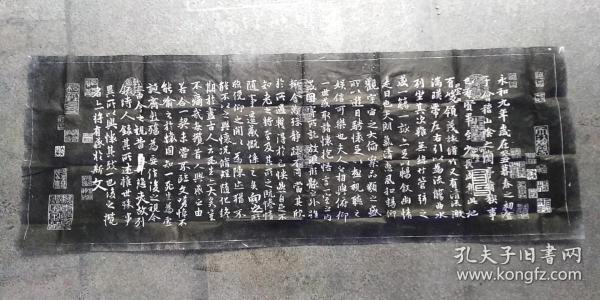 永和九年歲在癸丑暮春之初會
于會稽山陰之蘭亭脩稧事
也羣賢畢至少長咸集此地
有崇山峻領茂林脩竹又有清流激
湍暎帶左右引以為流觴曲水
列坐其次雖無絲竹管弦之
盛一觴一詠亦足以暢敘幽情
是日也天朗氣清惠風和暢仰
觀宇宙之大俯察品類之盛
所以遊目騁懷足以極視聽之
娛信可樂也夫人之相與俯仰
一世或取諸懷抱悟言一室之內
或因寄所託放浪形骸之外雖
趣舍萬殊靜躁不同當其欣
於所遇蹔得於己快然自足不
知老之將至及其所之既惓情
隨事遷感慨係之矣向之所欣
俛仰之間以為陳迹猶不
能不以之興懷況脩短隨化終
期於盡古人云死生亦大矣豈
不痛哉每攬昔人興感之由
若合一契未嘗不臨文嗟悼不
能喻之於懷固知一死生為虛
誕齊彭殤為妄作後之視今
亦由今之視昔悲夫故列
敘時人錄其所述雖世殊事
異所以興懷其致一也後之攬
者亦將有感於斯文
孔夫子旧书网
www.kongfz.com